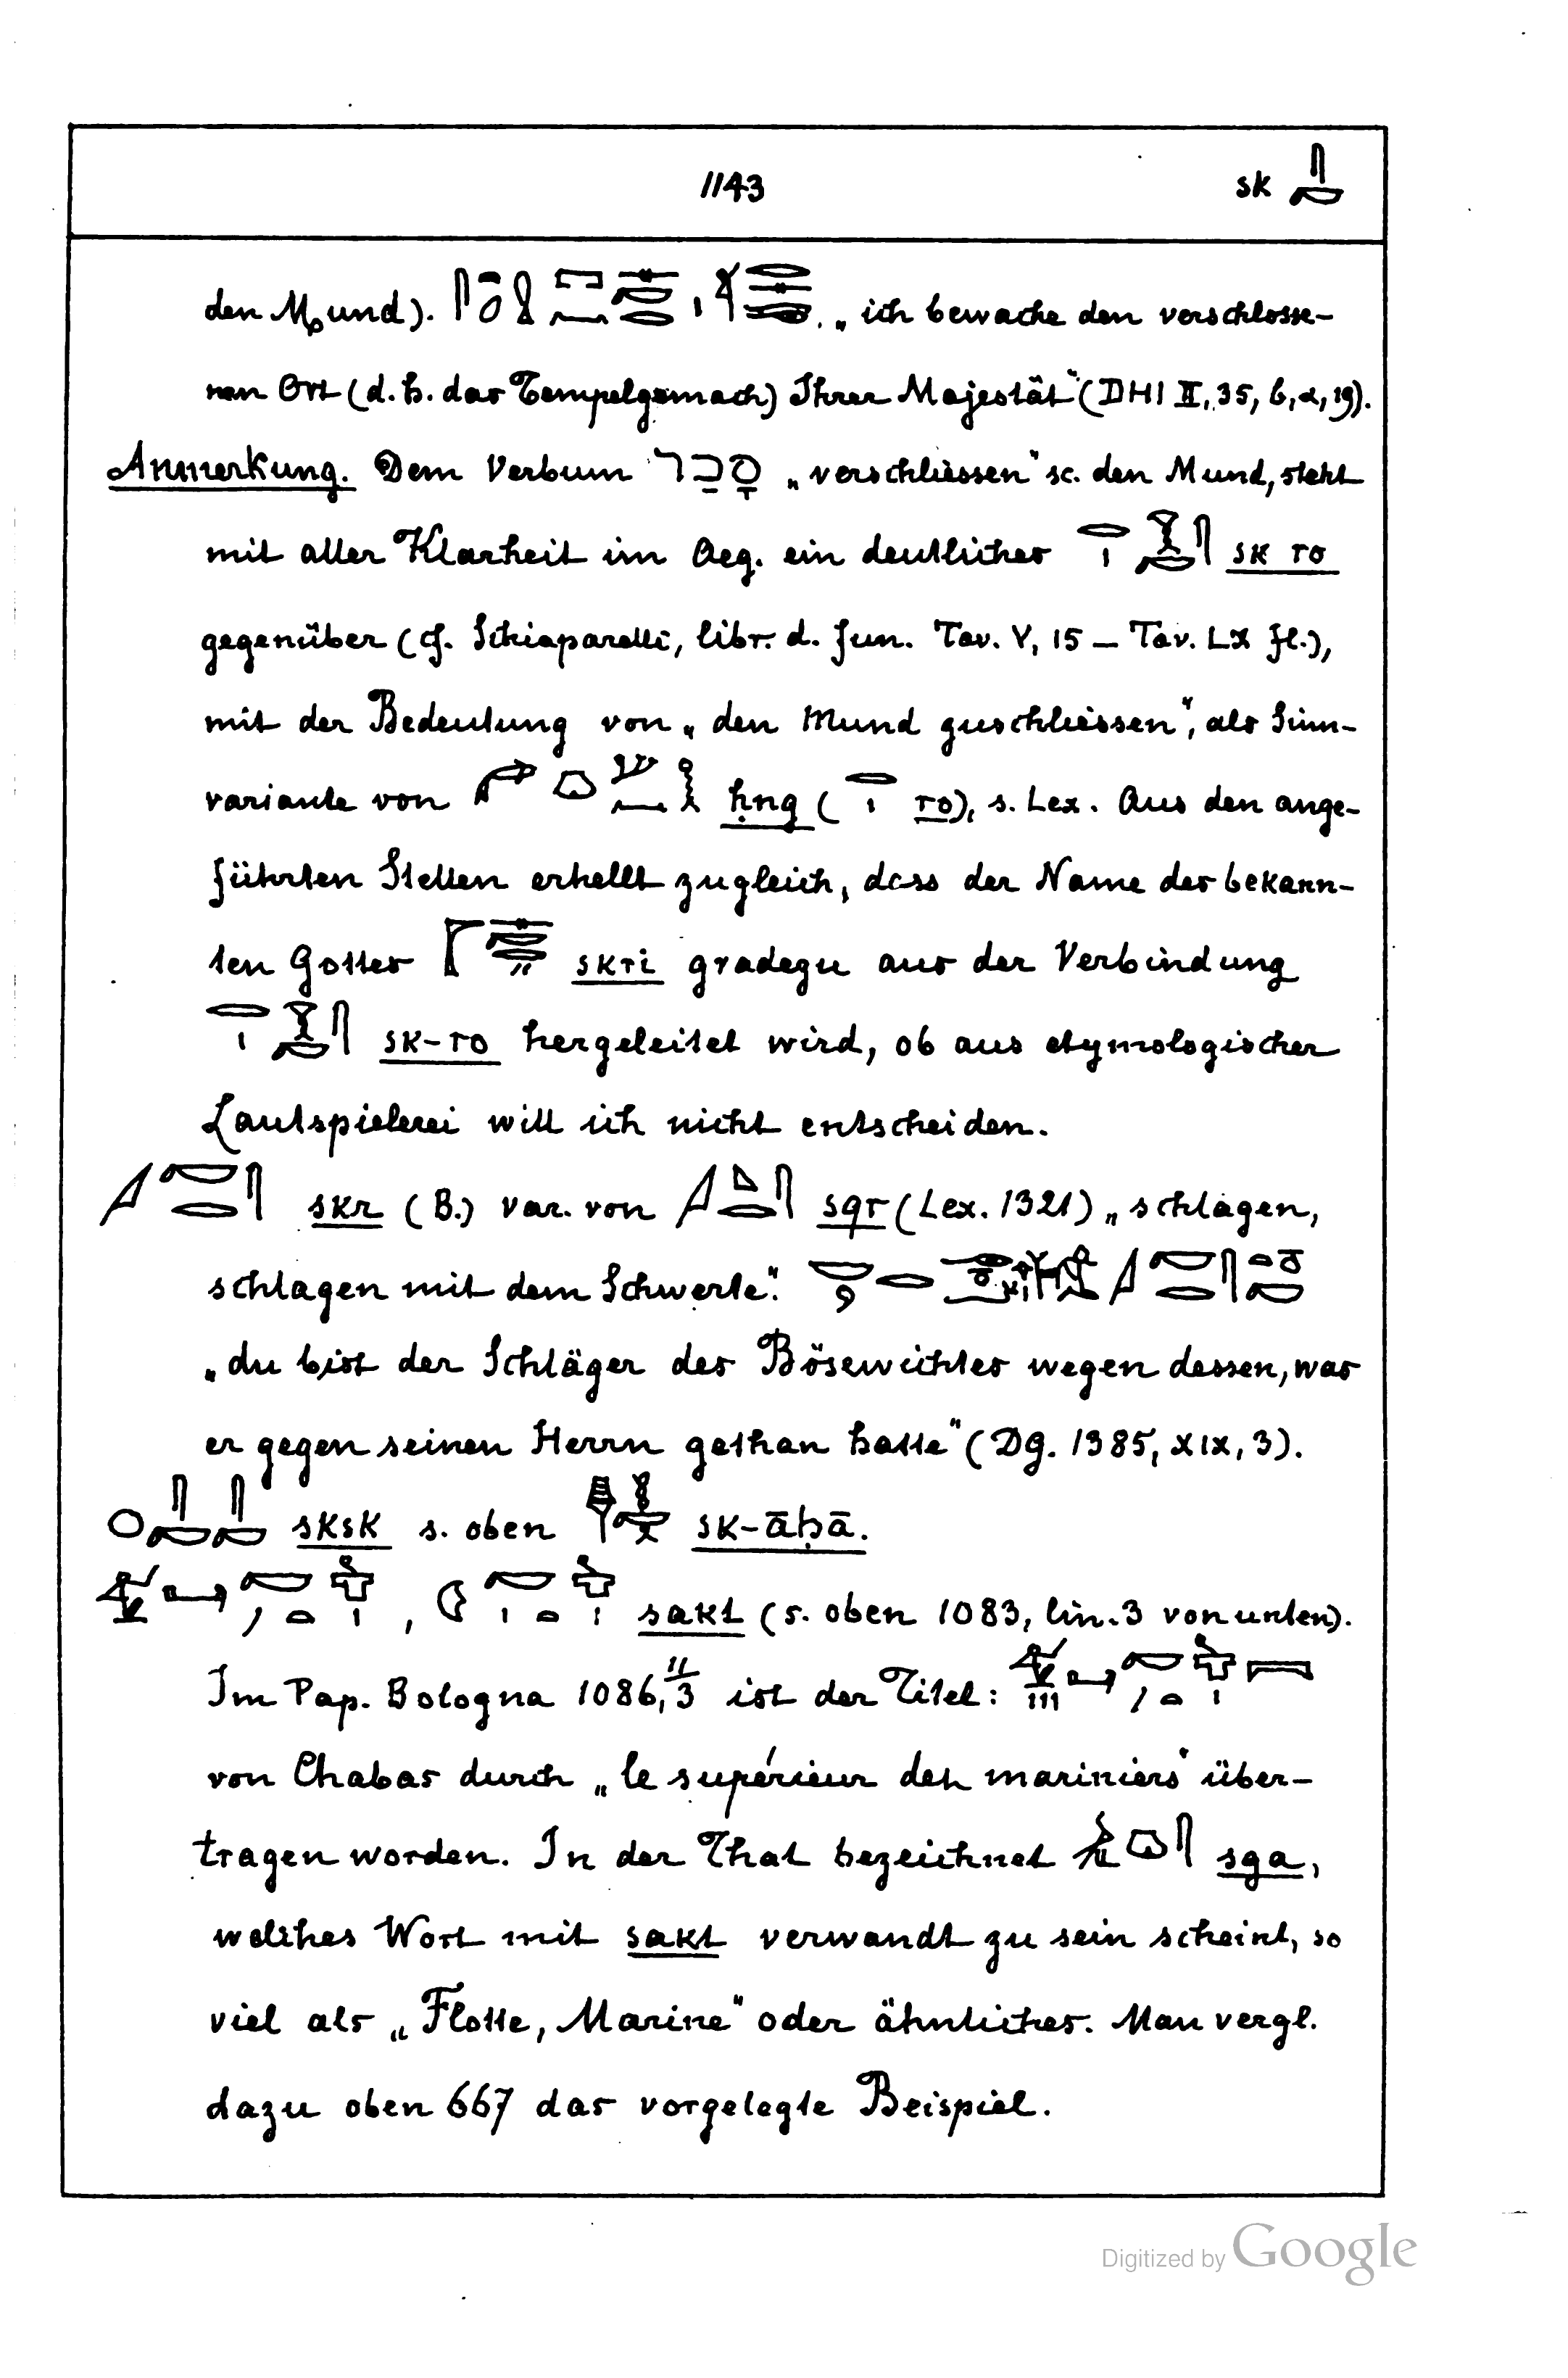 1143 sk
den Mund). „ich bewache den verschlosse-
nen Ort (d. h. das Tempelgemach) Ihrer Majestät“ (DHI II, 35, b, α, 19).
Anmerkung. Dem Verbum „verschliessen“ sc. den Mund, steht
mit aller Klarheit im Aeg. ein deutliches sk ro
gegenüber (cf. Schiaparelli, libr. d. fun. Tav. V, 15 – Tav. LX fl.),
mit der Bedeutung von „den Mund zuschliessen“, als Sinn-
variante von ḥng ( ro), s. Lex. Aus den ange-
führten Stellen erhellt zugleich, dass der Name des bekann-
ten Gottes skri gradezu aus der Verbindung
sk-ro hergeleitet wird, ob aus etymologischer
Lautspielerei will ich nicht entscheiden.
skr (B.) var. von sqr (Lex. 1321) „schlagen,
schlagen mit dem Schwerte“.
„du bist der Schläger des Bösewichtes wegen dessen, was
er gegen seinen Herrn gethan hatte“ (Dg. 1385, XIX, 3).
sksk s. oben sk-āḥā.
, sakt (s. oben 1083, lin. 3 von unten).
Im Pap. Bologna 1086, 11/3 ist der Titel:
von Chabas durch „le supérieur des mariniers“ über-
tragen worden. In der That bezeichnet sga,
welches Wort mit sakt verwandt zu sein scheint, so
viel als „Flotte, Marine“ oder ähnliches. Man vergl.
dazu oben 667 das vorgelegte Beispiel.
Digitized by Google